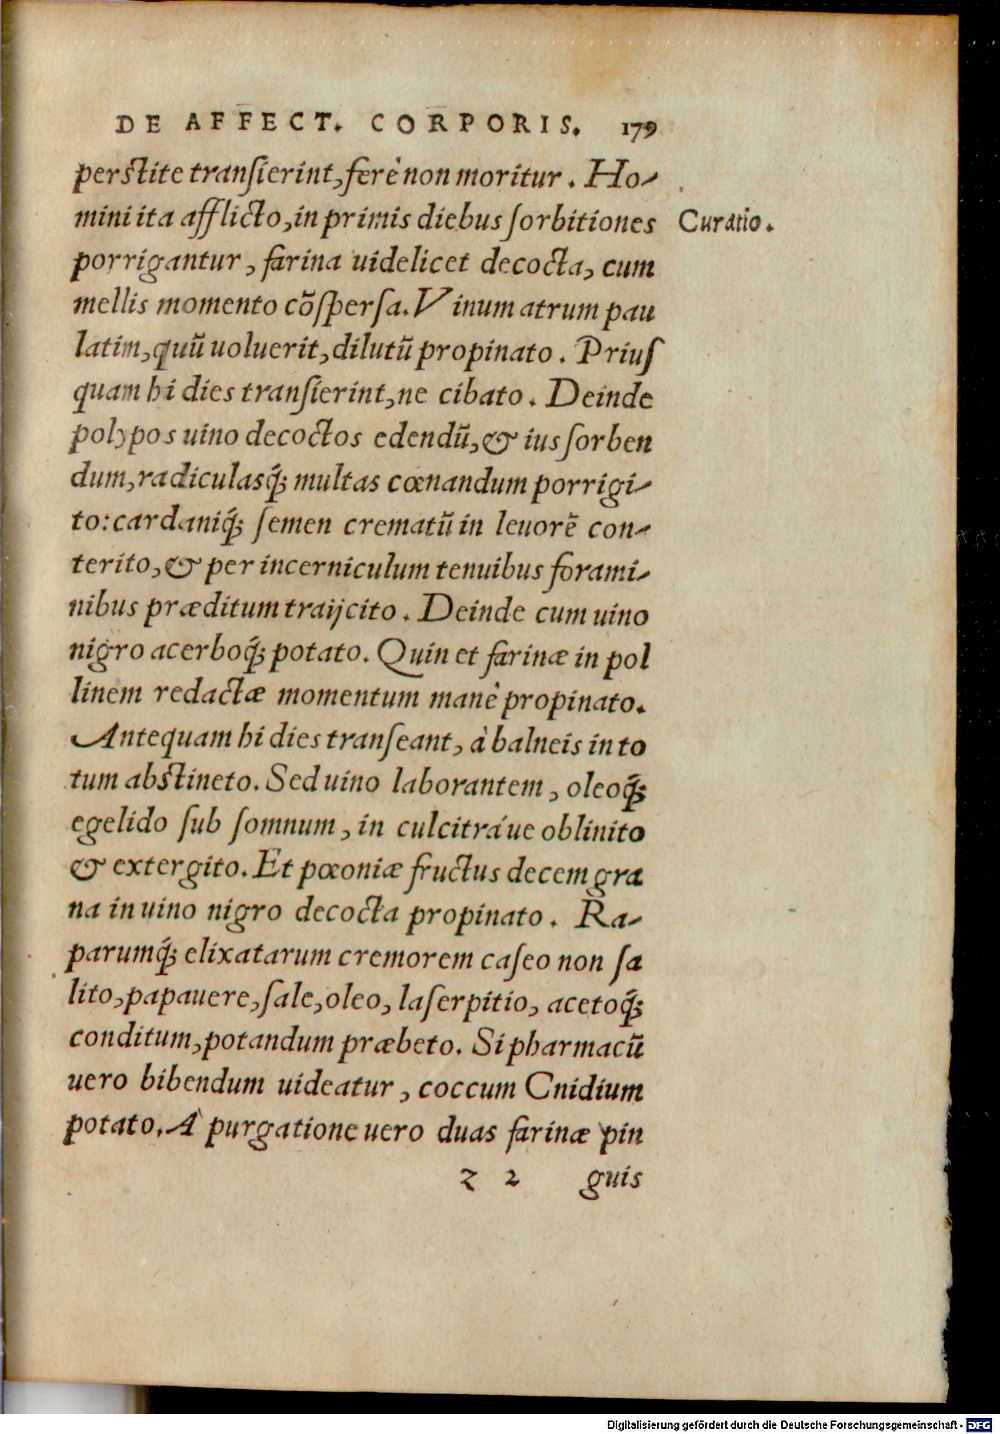 DE AFFECT. CORPORIS. 179
perstite transierint, ferè non moritur. Ho-
mini ita afflicto, in primis diebus sorbitiones
Curatio.
porrigantur, farina uidelicet decocta, cum
mellis momento cõspersa. Vinum atrum pau
latim, quũ uoluerit, dilutũ propinato. Prius
quam hi dies transierint, ne cibato. Deinde
polypos uino decoctos edendũ, & ius sorben
dum, radiculasq́; multas cœnandum porrigi-
to: cardaniq́; semen crematũ in leuorẽ con-
terito, & per incerniculum tenuibus forami-
nibus præditum traijcito. Deinde cum uino
nigro acerboq́; potato. Quin et farinæ in pol
linem redactæ momentum manè propinato.
Antequam hi dies transeant, à balneis in to
tum abstineto. Sed uino laborantem, oleoq́;
egelido sub somnum, in culcitráue oblinito
& extergito. Et pœoniæ fructus decem gra
na in uino nigro decocta propinato. Ra-
parumq́; elixatarum cremorem caseo non sa
lito, papauere, sale, oleo, laserpitio, acetoq́;
conditum, potandum præbeto. Si pharmacũ
uero bibendum uideatur, coccum Cnidium
potato. À purgatione uero duas farinæ pin
z 2 guis
Digitalisierung gefördert durch die Deutsche Forschungsgemeinschaft - DFG